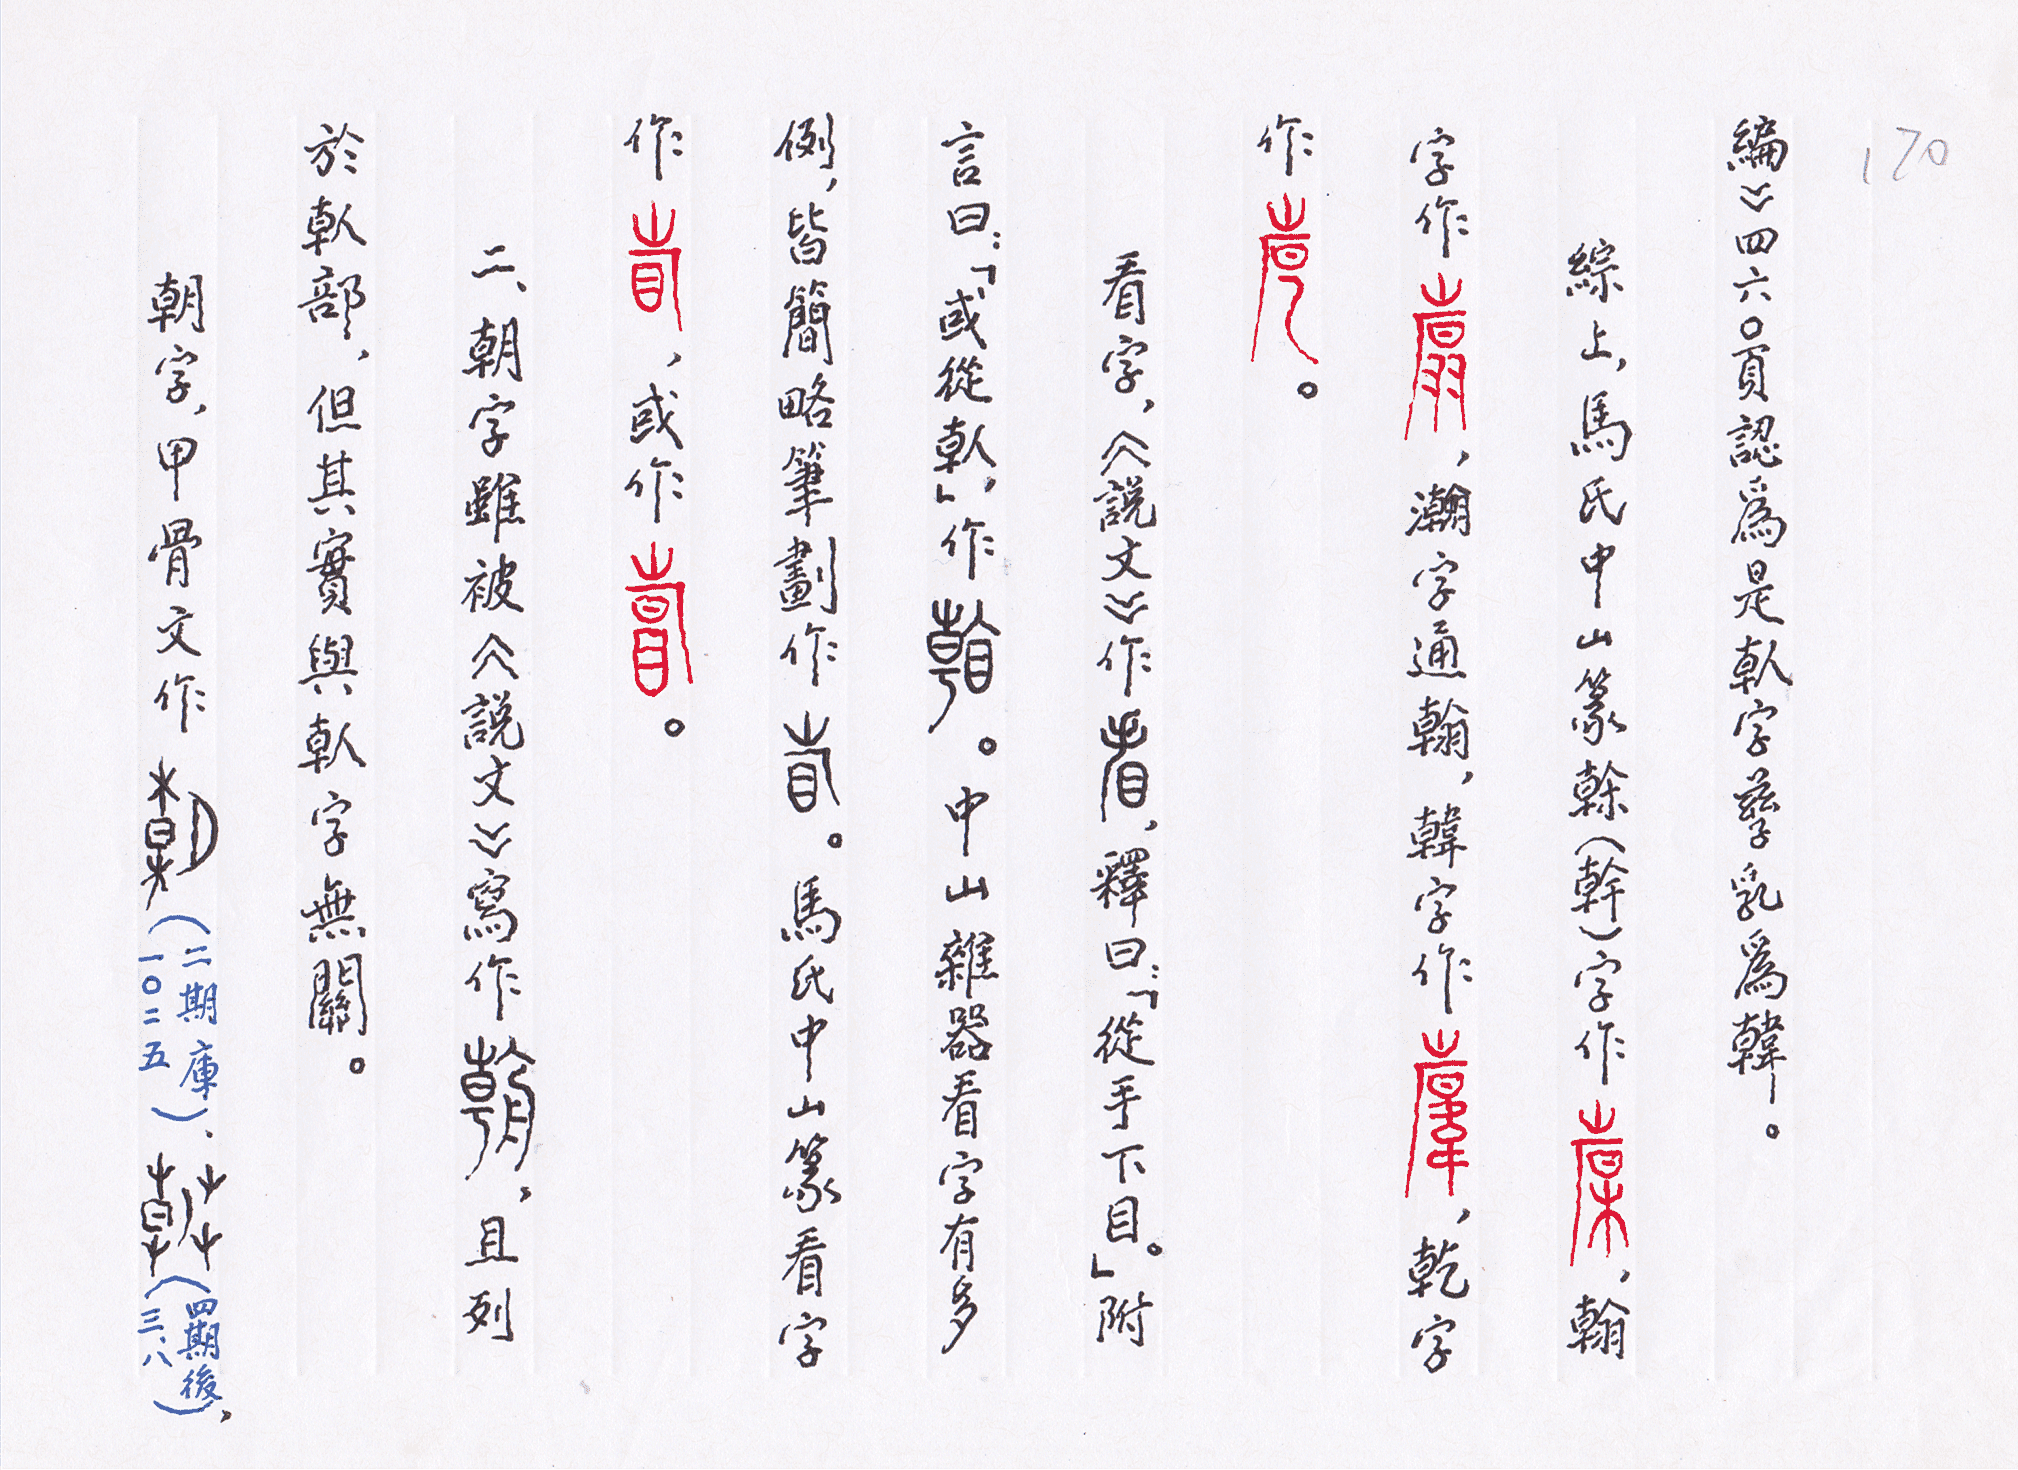 170
編》四六〇頁認爲是倝字孳乳爲韓。
綜上,馬氏中山篆榦(幹)字作,翰
字作,瀚字通翰,韓字作,乾字
作。
看字,《說文》作,釋曰:「從手下目。」附
言曰:「或從倝」,作。中山雜器看字有多
例,皆簡略筆劃作。馬氏中山篆看字
作,或作。
二、朝字雖被《說文》寫作,且列
於倝部,但其實與倝字無關。
朝字,甲骨文作(二期庫一〇二五)、(四期後三、八),